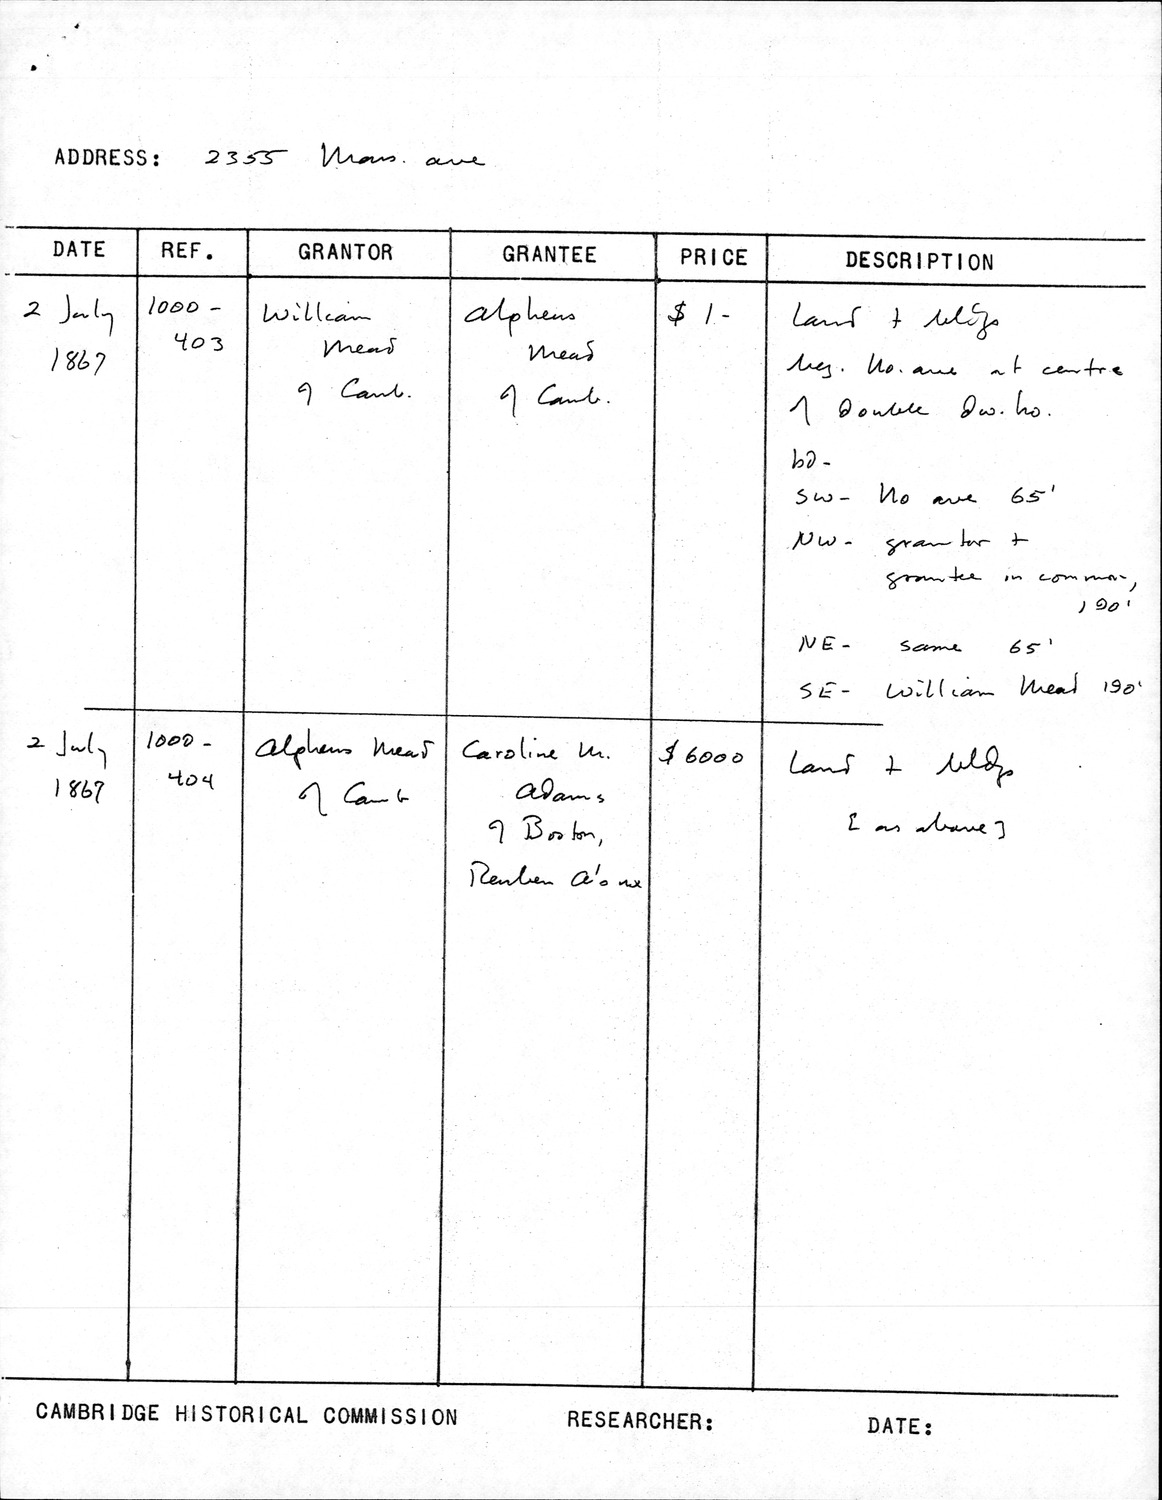 ADDRESS: 2355 Mass. ave
DATE REF. GRANTOR GRANTEE PRICE DESCRIPTION
2 July 1867
1000-403
William
Mead
of Camb.
Alpheus
Mead
of Camb.
$ 1-
Land + bldgs
beg. No. ave at centre
of double dw. ho.
bd-
SW- No ave 65'
NW- grantor +
grantee in common,
190'
NE- same 65'
SE- William Mead 190'
2 July
1867
1000-
404
Alpheus Mead
of Camb
Caroline M.
Adams
of Boston,
Reuben A's ux
$ 6000
Land + bldgs
[as above]
CAMBRIDGE HISTORICAL COMMISSION RESEARCHER: DATE: